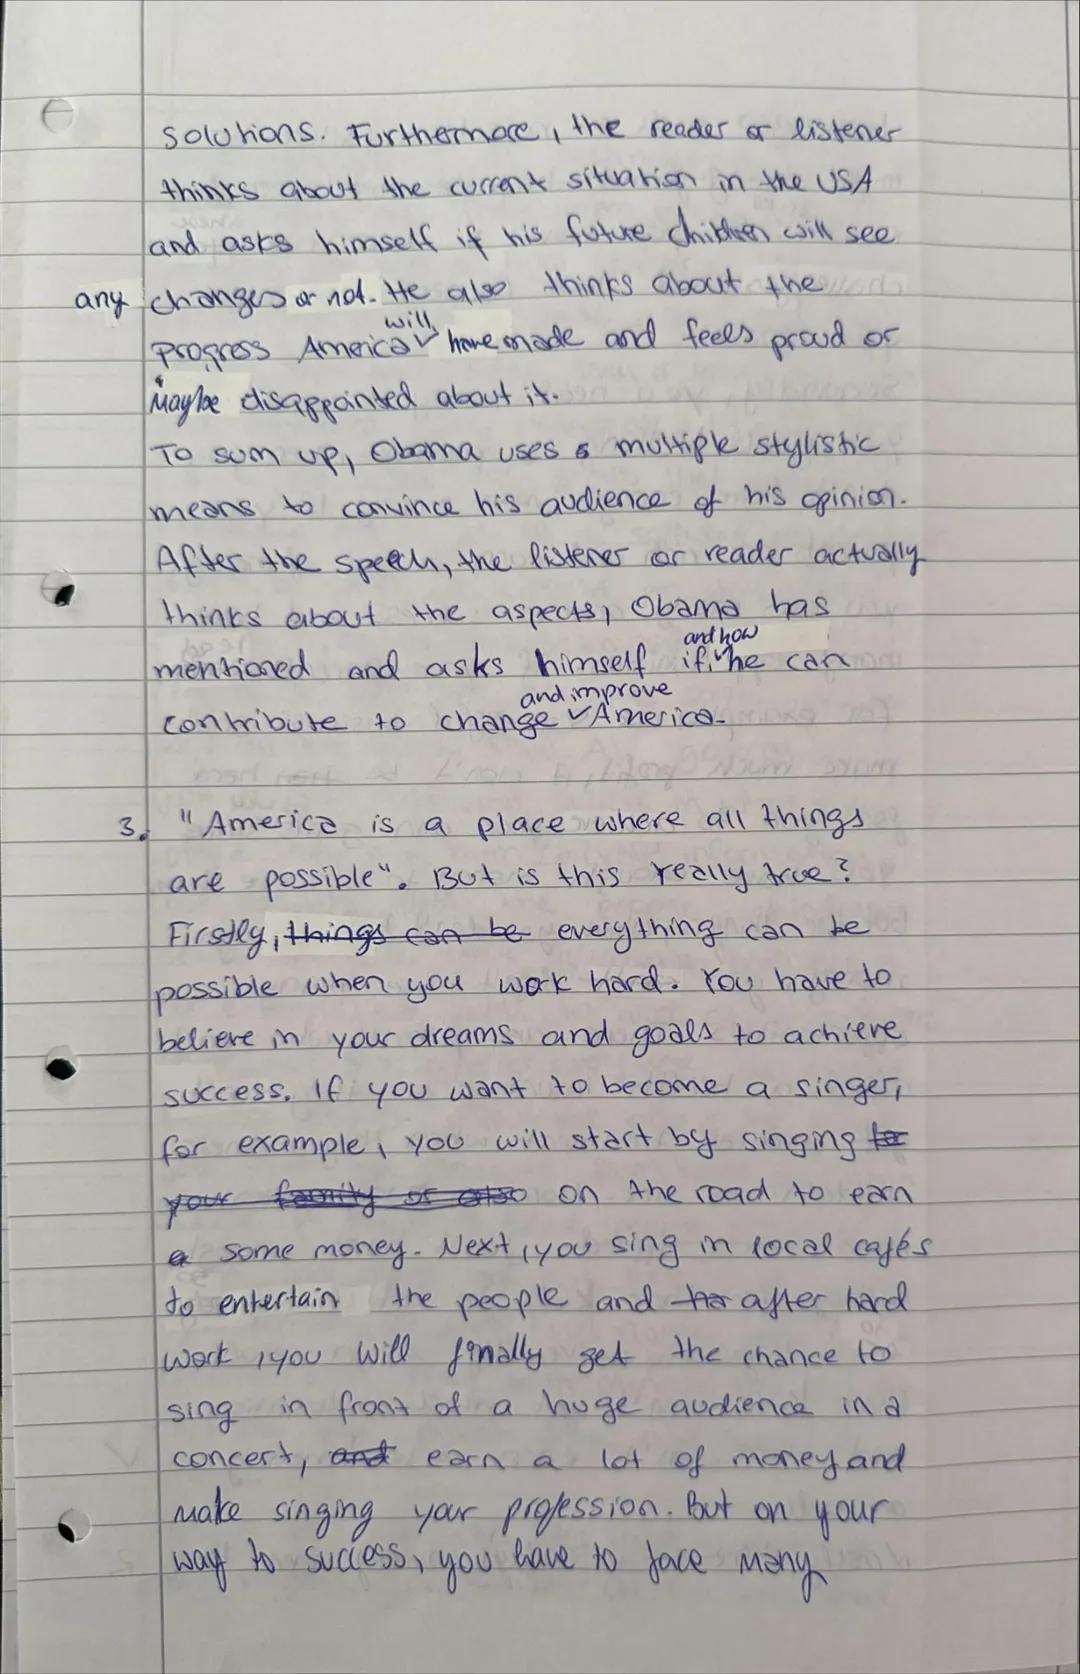 solutions. Furthermore, the reader or listener
thinks about the current situation in the USA
and asks himself if his future children will see
any changes or not. He also thinks about the
will
progress America ✓ have made and feels proud or
maybe disappointed about it.
To sum up, Obama uses multiple stylistic
means to convince his audience of his opinion.
After the speech, the listener or reader actually
thinks about the aspects, Obama has
and how
mentioned and asks himself if, ✓ he can
and improve
contribute to change ✓ America.
3. "America is a place where all things
are possible". But is this really true?
Firstly, things can be everything can be
possible when you work hard. You have to
believe in your dreams and goals to achieve
success. If you want to become a singer,
for example, you will start by singing for
your family or also on the road to earn
a some money. Next, you sing in local cafés
to entertain the people and after hard
work, you will finally get the chance to
sing in front of a huge audience in a
concert, and earn a lot of money and
make singing your profession. But on your
way to success, you have to face many